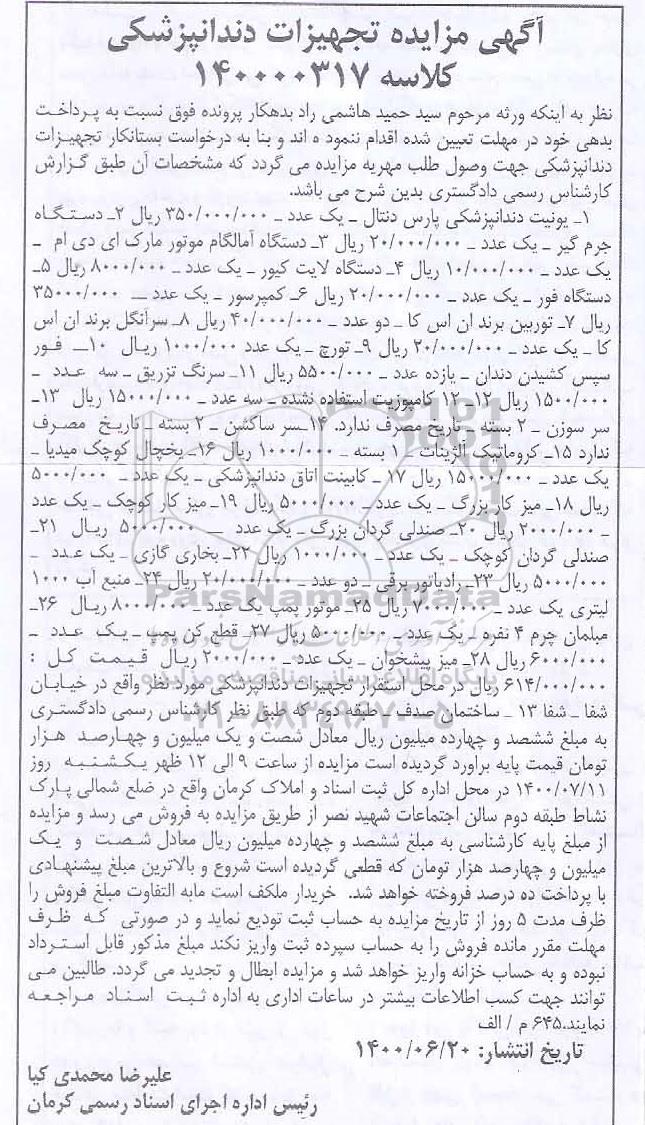 آگهی مزایده تجهیزات دندانپزشکی
کلاسه ۱۴۰۰۰۰۳۱۷
نظر به اینکه ورثه مرحوم سید حمید هاشمی راد بدهکار پرونده فوق نسبت به پرداخت
بدهی خود در مهلت تعیین شده اقدام ننموده اند و بنا به درخواست بستانکار تجهیزات
دندانپزشکی جهت وصول طلب مهریه مزایده می گردد که مشخصات آن طبق گزارش
کارشناس رسمی دادگستری بدین شرح می باشد.
۱ـ یونیت دندانپزشکی پارس دنتال ـ یک عدد ـ ۳۵۰/۰۰۰/۰۰۰ ریال ۲ـ دستگاه
جرم گیر ـ یک عدد ـ ۲۰/۰۰۰/۰۰۰ ریال ۳ـ دستگاه آمالگام موتور مارک ای دی ام ـ
یک عدد ـ ۱۰/۰۰۰/۰۰۰ ریال ۴ـ دستگاه لایت کیور ـ یک عدد ـ ۸۰۰۰/۰۰۰ ریال ۵ـ
دستگاه فور ـ یک عدد ـ ۲۰/۰۰۰/۰۰۰ ریال ۶ـ کمپرسور ـ یک عدد ـ ۳۵۰۰۰/۰۰۰
ریال ۷ـ توربین برند ان اس کا ـ دو عدد ـ ۴۰/۰۰۰/۰۰۰ ریال ۸ـ سرآنگل برند ان اس
کا ـ یک عدد ـ ۲۰/۰۰۰/۰۰۰ ریال ۹ـ تورچ ـ یک عدد ۱۰۰۰/۰۰۰ ریال ۱۰ـ فور
سپس کشیدن دندان ـ یازده عدد ـ ۵۵۰۰/۰۰۰ ریال ۱۱ـ سرنگ تزریق ـ سه عدد ـ
۱۵۰۰/۰۰۰ ریال ۱۲ـ ۱۲ کامپوزیت استفاده نشده ـ سه عدد ـ ۱۵۰۰۰/۰۰۰ ریال ۱۳ـ
سر سوزن ـ ۲ بسته ـ تاریخ مصرف ندارد. ۱۴ـ سر ساکشن ـ ۲ بسته ـ تاریخ مصرف
ندارد ۱۵ـ کروماتیک آلژینات ـ ۱ بسته ـ ۱۰۰۰/۰۰۰ ریال ۱۶ـ یخچال کوچک میدیا ـ
یک عدد ـ ۱۵۰۰۰/۰۰۰ ریال ۱۷ ـ کابینت اتاق دندانپزشکی ـ یک عدد ـ ۵۰۰۰/۰۰۰
ریال ۱۸ـ میز کار بزرگ ـ یک عدد ـ ۵۰۰۰/۰۰۰ ریال ۱۹ـ میز کار کوچک ـ یک عدد
ـ ۲۰۰۰/۰۰۰ ریال ۲۰ـ صندلی گردان بزرگ ـ یک عدد ـ ۵۰۰۰/۰۰۰ ریال ۲۱ـ
صندلی گردان کوچک ـ یک عدد ـ ۱۰۰۰/۰۰۰ ریال ۲۲ـ بخاری گازی ـ یک عدد ـ
۵۰۰۰/۰۰۰ ریال ۲۳ـ رادیاتور برقی ـ دو عدد ـ ۲۰/۰۰۰/۰۰۰ ریال ۲۴ـ منبع آب ۱۰۰۰
لیتری یک عدد ـ ۷۰۰۰/۰۰۰ ریال ۲۵ـ موتور پمپ یک عدد ـ ۸۰۰۰/۰۰۰ ریال ۲۶ـ
مبلمان چرم ۴ نفره ـ یک عدد ـ ۵۰۰۰/۰۰۰ ریال ۲۷ـ قطع کن پمپ ـ یک عدد ـ
۶۰۰۰/۰۰۰ ریال ۲۸ـ میز پیشخوان ـ یک عدد ـ ۲۰۰۰/۰۰۰ ریال قیمت کل :
۶۱۴/۰۰۰/۰۰۰ ریال در محل استقرار تجهیزات دندانپزشکی مورد نظر واقع در خیابان
شفا ـ شفا ۱۳ ـ ساختمان صدف ـ طبقه دوم که طبق نظر کارشناس رسمی دادگستری
به مبلغ ششصد و چهارده میلیون ریال معادل شصت و یک میلیون و چهارصد هزار
تومان قیمت پایه براورد گردیده است مزایده از ساعت ۹ الی ۱۲ ظهر یکشنبه روز
۱۴۰۰/۰۷/۱۱ در محل اداره کل ثبت اسناد و املاک کرمان واقع در ضلع شمالی پارک
نشاط طبقه دوم سالن اجتماعات شهید نصر از طریق مزایده به فروش می رسد و مزایده
از مبلغ پایه کارشناسی به مبلغ ششصد و چهارده میلیون ریال معادل شصت و یک
میلیون و چهارصد هزار تومان که قطعی گردیده است شروع و بالاترین مبلغ پیشنهادی
با پرداخت ده درصد فروخته خواهد شد. خریدار ملکف است مابه التفاوت مبلغ فروش را
ظرف مدت ۵ روز از تاریخ مزایده به حساب ثبت تودیع نماید و در صورتی که ظرف
مهلت مقرر مانده فروش را به حساب سپرده ثبت واریز نکند مبلغ مذکور قابل استرداد
نبوده و به حساب خزانه واریز خواهد شد و مزایده ابطال و تجدید می گردد. طالبین می
توانند جهت کسب اطلاعات بیشتر در ساعات اداری به اداره ثبت اسناد مراجعه
نمایند.۶۴۵ م / الف
تاریخ انتشار: ۱۴۰۰/۰۶/۲۰
علیرضا محمدی کیا
رئیس اداره اجرای اسناد رسمی کرمان
ParsNamadData
پایگاه اطلاع رسانی مناقصه و مزایده
۰۲۱-۸۸۳۴۹۶۷۰-۵